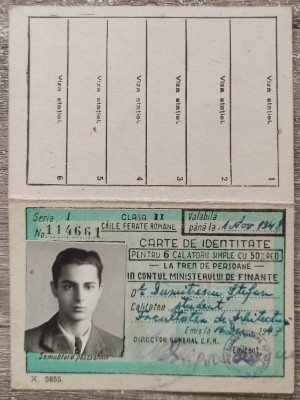 Viza stației.
6
Viza stației.
5
Viza stației.
4
Viza stației.
3
Viza stației.
2
Viza stației.
1
Seria I
No. 114661
CLASA II
CĂILE FERATE ROMANE
Valabilă
până la 1 Nov. 1948
CARTE DE IDENTITATE
PENTRU 6 CALATORII SIMPLE CU 50% RED
LA TREN DE PERSOANE
IN CONTUL MINISTERULUI DE FINANTE
D Dumitrescu Ștefan
Calitatea student
Facultatea de Arhitectură
Emis la 1947
DIRECTOR GENERAL C.F.R.
Emitent,
Semnătura posesorului
X. 5855.